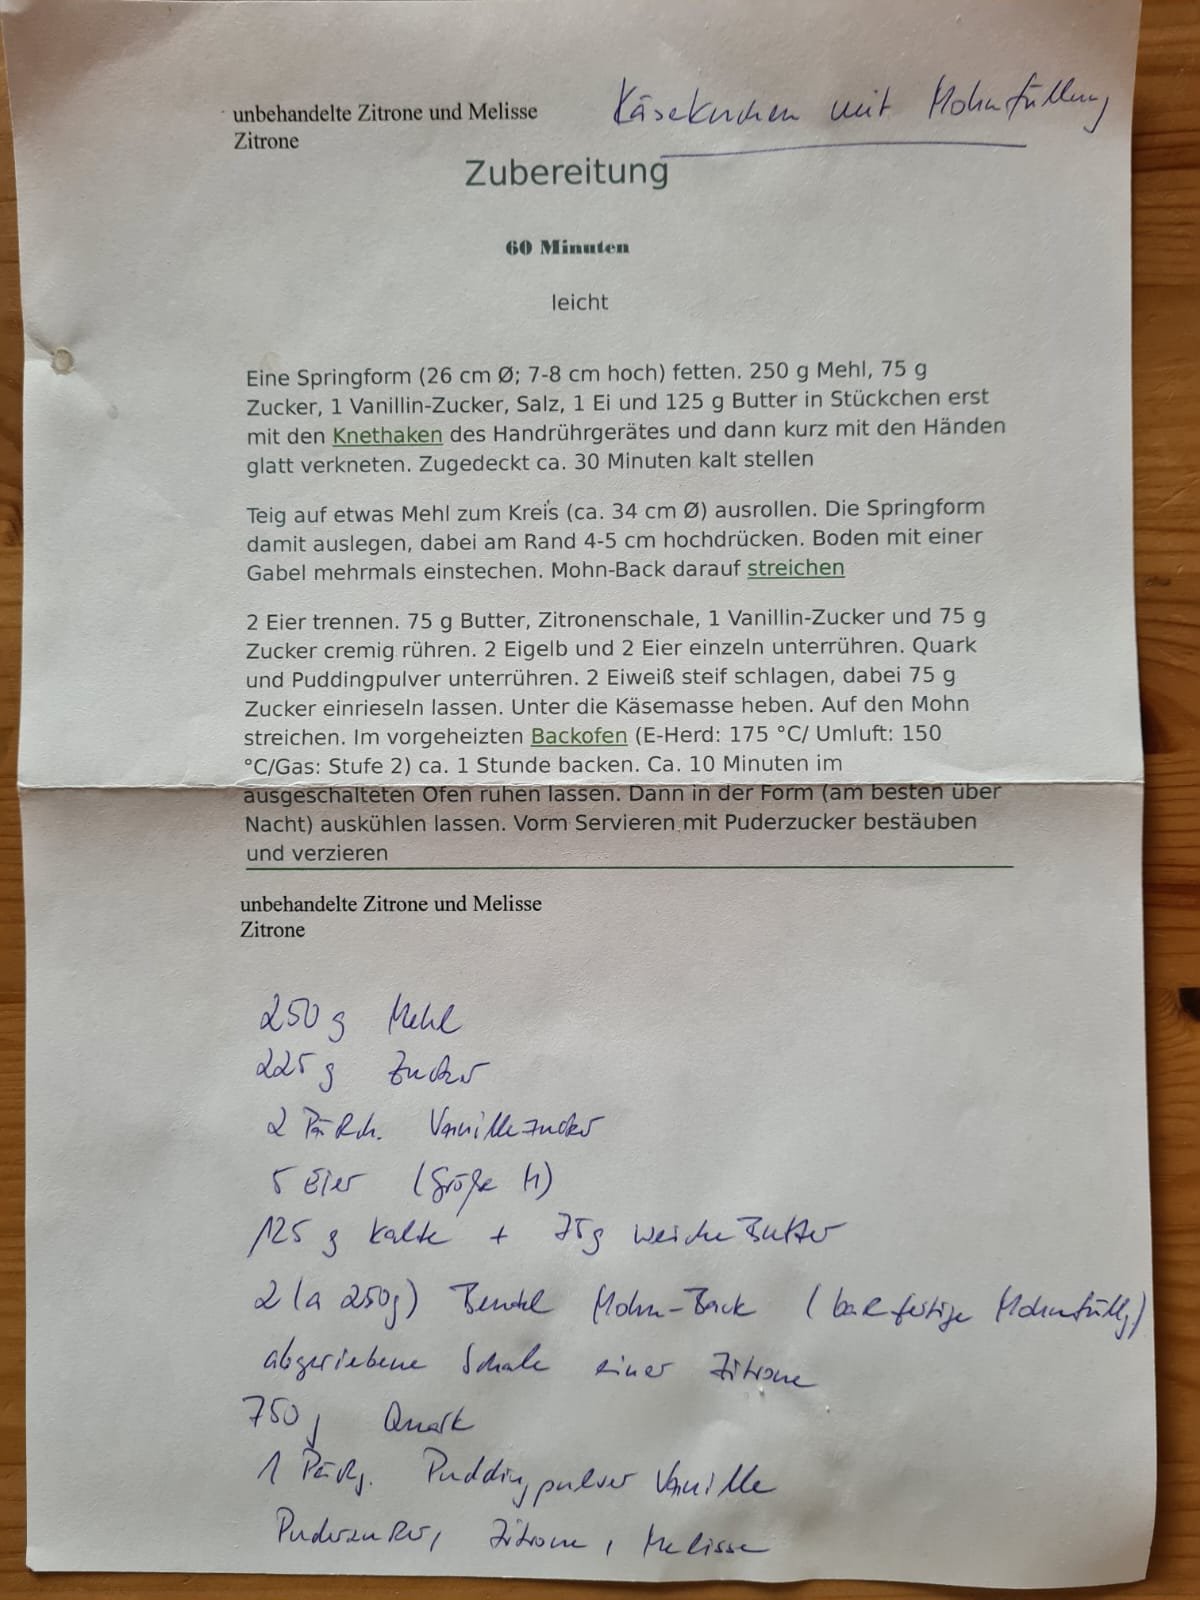 unbehandelte Zitrone und Melisse
Zitrone
Käsekuchen mit Mohnfüllung
Zubereitung
60 Minuten
leicht
Eine Springform (26 cm Ø; 7-8 cm hoch) fetten. 250 g Mehl, 75 g
Zucker, 1 Vanillin-Zucker, Salz, 1 Ei und 125 g Butter in Stückchen erst
mit den Knethaken des Handrührgerätes und dann kurz mit den Händen
glatt verkneten. Zugedeckt ca. 30 Minuten kalt stellen
Teig auf etwas Mehl zum Kreis (ca. 34 cm Ø) ausrollen. Die Springform
damit auslegen, dabei am Rand 4-5 cm hochdrücken. Boden mit einer
Gabel mehrmals einstechen. Mohn-Back darauf streichen
2 Eier trennen. 75 g Butter, Zitronenschale, 1 Vanillin-Zucker und 75 g
Zucker cremig rühren. 2 Eigelb und 2 Eier einzeln unterrühren. Quark
und Puddingpulver unterrühren. 2 Eiweiß steif schlagen, dabei 75 g
Zucker einrieseln lassen. Unter die Käsemasse heben. Auf den Mohn
streichen. Im vorgeheizten Backofen (E-Herd: 175 °C/ Umluft: 150
°C/Gas: Stufe 2) ca. 1 Stunde backen. Ca. 10 Minuten im
ausgeschalteten Ofen ruhen lassen. Dann in der Form (am besten über
Nacht) auskühlen lassen. Vorm Servieren mit Puderzucker bestäuben
und verzieren
unbehandelte Zitrone und Melisse
Zitrone
250 g Mehl
225 g Zucker
2 Päckch. Vanillezucker
5 Eier (Größe M)
125 g kalte + 75g weiche Butter
2 (a 250g) Beutel Mohn-Back (backfertige Mohnfüllg)
abgeriebene Schale einer Zitrone
750 g Quark
1 Päckg. Puddingpulver Vanille
Puderzucker, Zitrone, Melisse